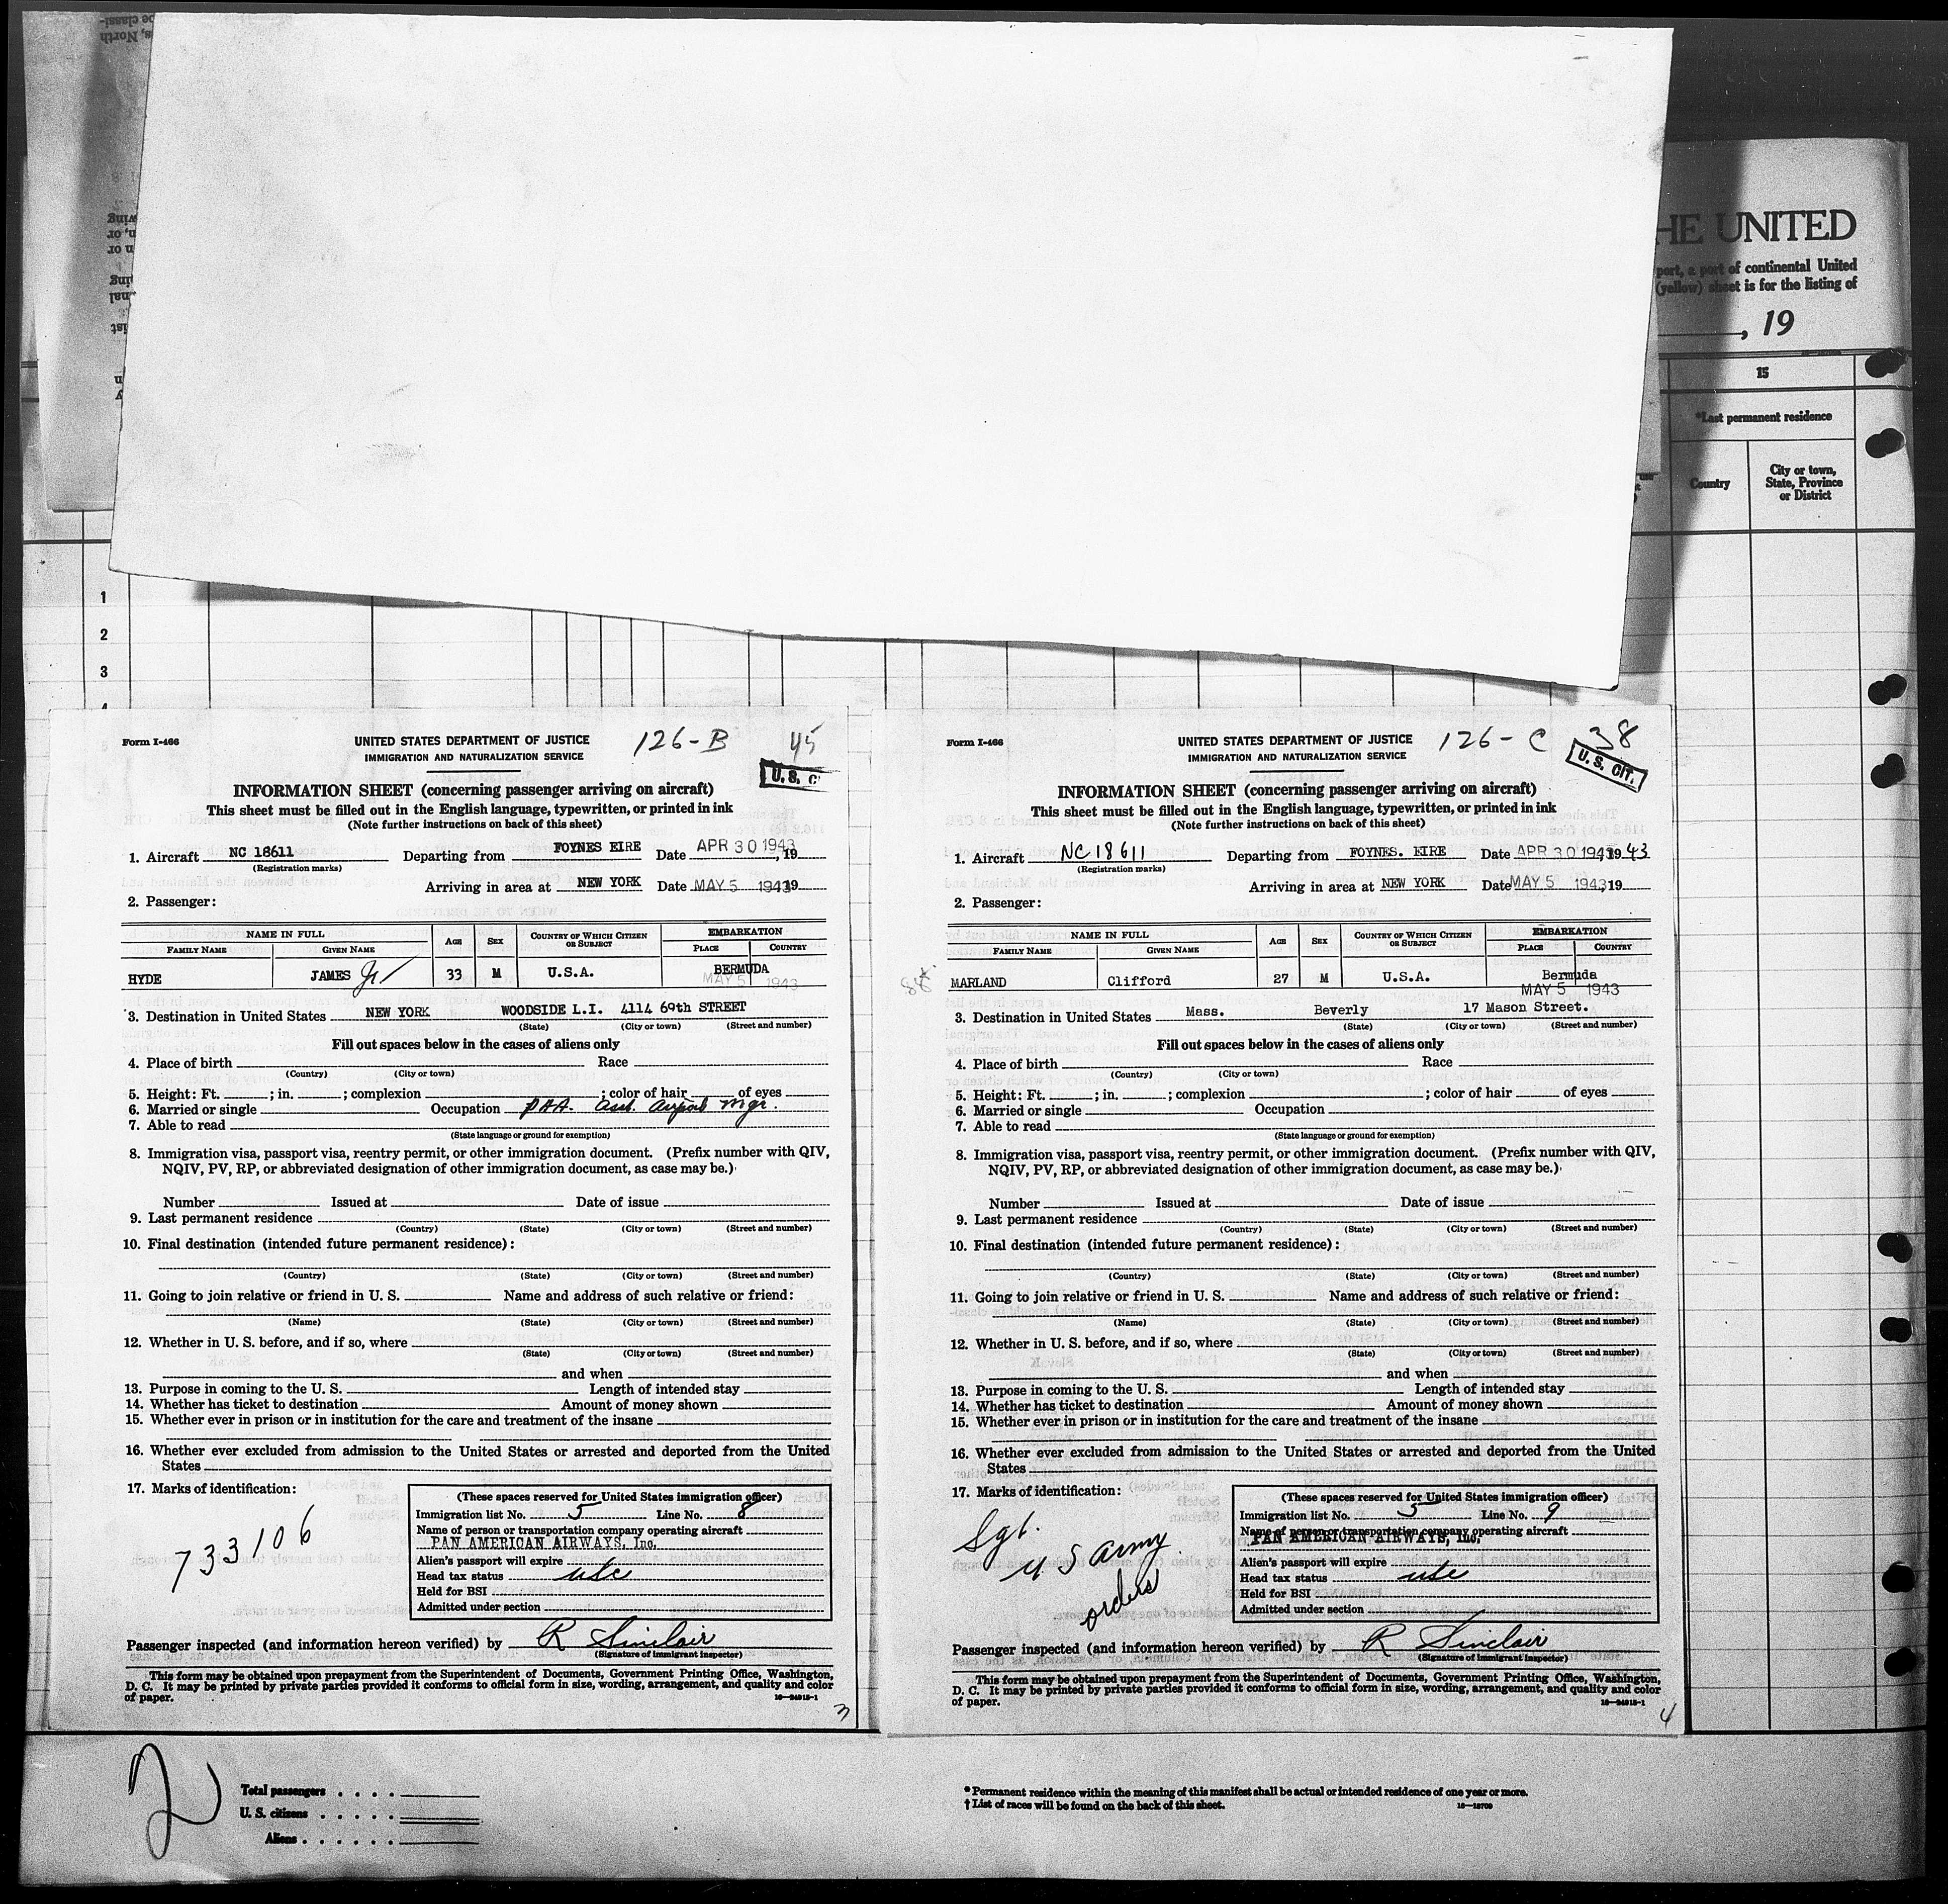 THE UNITED
port, a port of continental United
(yellow) sheet is for the listing of
, 19
15
*Last permanent residence
Country
City or town, State, Province or District
1
2
3
4
Form I-466
UNITED STATES DEPARTMENT OF JUSTICE
IMMIGRATION AND NATURALIZATION SERVICE
126-B
45
U. S. C
INFORMATION SHEET (concerning passenger arriving on aircraft)
This sheet must be filled out in the English language, typewritten, or printed in ink
(Note further instructions on back of this sheet)
1. Aircraft NC 18611 Departing from FOYNES EIRE Date APR 30 1943, 19
(Registration marks)
Arriving in area at NEW YORK Date MAY 5 1943 19
2. Passenger:
NAME IN FULL AGE SEX COUNTRY OF WHICH CITIZEN OR SUBJECT EMBARKATION
FAMILY NAME GIVEN NAME PLACE COUNTRY
HYDE JAMES Jr 33 M U.S.A. BERMUDA
MAY 5 1943
3. Destination in United States NEW YORK WOODSIDE L.I. 4114 69th STREET
(State) (City or town) (Street and number)
Fill out spaces below in the cases of aliens only
4. Place of birth Race
(Country) (City or town)
5. Height: Ft. ; in. ; complexion ; color of hair of eyes
6. Married or single Occupation PAA. Asst. Airport Mgr.
7. Able to read
(State language or ground for exemption)
8. Immigration visa, passport visa, reentry permit, or other immigration document. (Prefix number with QIV,
NQIV, PV, RP, or abbreviated designation of other immigration document, as case may be.)
Number Issued at Date of issue
9. Last permanent residence
(Country) (State) (City or town) (Street and number)
10. Final destination (intended future permanent residence):
(Country) (State) (City or town) (Street and number)
11. Going to join relative or friend in U. S. Name and address of such relative or friend:
(Name) (State) (City or town) (Street and number)
12. Whether in U. S. before, and if so, where
(State) (City or town) (Street and number)
and when
13. Purpose in coming to the U. S. Length of intended stay
14. Whether has ticket to destination Amount of money shown
15. Whether ever in prison or in institution for the care and treatment of the insane
16. Whether ever excluded from admission to the United States or arrested and deported from the United
States
17. Marks of identification:
733106
(These spaces reserved for United States immigration officer)
Immigration list No. 5 Line No. 8
Name of person or transportation company operating aircraft
PAN AMERICAN AIRWAYS, Inc.
Alien's passport will expire
Head tax status usc
Held for BSI
Admitted under section
Passenger inspected (and information hereon verified) by R Sinclair
(Signature of immigrant inspector)
This form may be obtained upon prepayment from the Superintendent of Documents, Government Printing Office, Washington,
D. C. It may be printed by private parties provided it conforms to official form in size, wording, arrangement, and quality and color
of paper. 16—24915-1
3
Form I-466
UNITED STATES DEPARTMENT OF JUSTICE
IMMIGRATION AND NATURALIZATION SERVICE
126-C
38
U. S. CIT.
INFORMATION SHEET (concerning passenger arriving on aircraft)
This sheet must be filled out in the English language, typewritten, or printed in ink
(Note further instructions on back of this sheet)
1. Aircraft NC 18611 Departing from FOYNES. EIRE Date APR 30 1943 19 43
(Registration marks)
Arriving in area at NEW YORK Date MAY 5 1943, 19
2. Passenger:
NAME IN FULL AGE SEX COUNTRY OF WHICH CITIZEN OR SUBJECT EMBARKATION
FAMILY NAME GIVEN NAME PLACE COUNTRY
MARLAND Clifford 27 M U.S.A. Bermuda
MAY 5 1943
3. Destination in United States Mass. Beverly 17 Mason Street.
(State) (City or town) (Street and number)
Fill out spaces below in the cases of aliens only
4. Place of birth Race
(Country) (City or town)
5. Height: Ft. ; in. ; complexion ; color of hair of eyes
6. Married or single Occupation
7. Able to read
(State language or ground for exemption)
8. Immigration visa, passport visa, reentry permit, or other immigration document. (Prefix number with QIV,
NQIV, PV, RP, or abbreviated designation of other immigration document, as case may be.)
Number Issued at Date of issue
9. Last permanent residence
(Country) (State) (City or town) (Street and number)
10. Final destination (intended future permanent residence):
(Country) (State) (City or town) (Street and number)
11. Going to join relative or friend in U. S. Name and address of such relative or friend:
(Name) (State) (City or town) (Street and number)
12. Whether in U. S. before, and if so, where
(State) (City or town) (Street and number)
and when
13. Purpose in coming to the U. S. Length of intended stay
14. Whether has ticket to destination Amount of money shown
15. Whether ever in prison or in institution for the care and treatment of the insane
16. Whether ever excluded from admission to the United States or arrested and deported from the United
States
17. Marks of identification:
Sgt.
U S Army
orders
(These spaces reserved for United States immigration officer)
Immigration list No. 5 Line No. 9
Name of person or transportation company operating aircraft
PAN AMERICAN AIRWAYS, Inc.
Alien's passport will expire
Head tax status usc
Held for BSI
Admitted under section
Passenger inspected (and information hereon verified) by R Sinclair
(Signature of immigrant inspector)
This form may be obtained upon prepayment from the Superintendent of Documents, Government Printing Office, Washington,
D. C. It may be printed by private parties provided it conforms to official form in size, wording, arrangement, and quality and color
of paper. 16—24915-1
4
2
Total passengers
U. S. citizens
Aliens
* Permanent residence within the meaning of this manifest shall be actual or intended residence of one year or more.
† List of races will be found on the back of this sheet. 16—18709